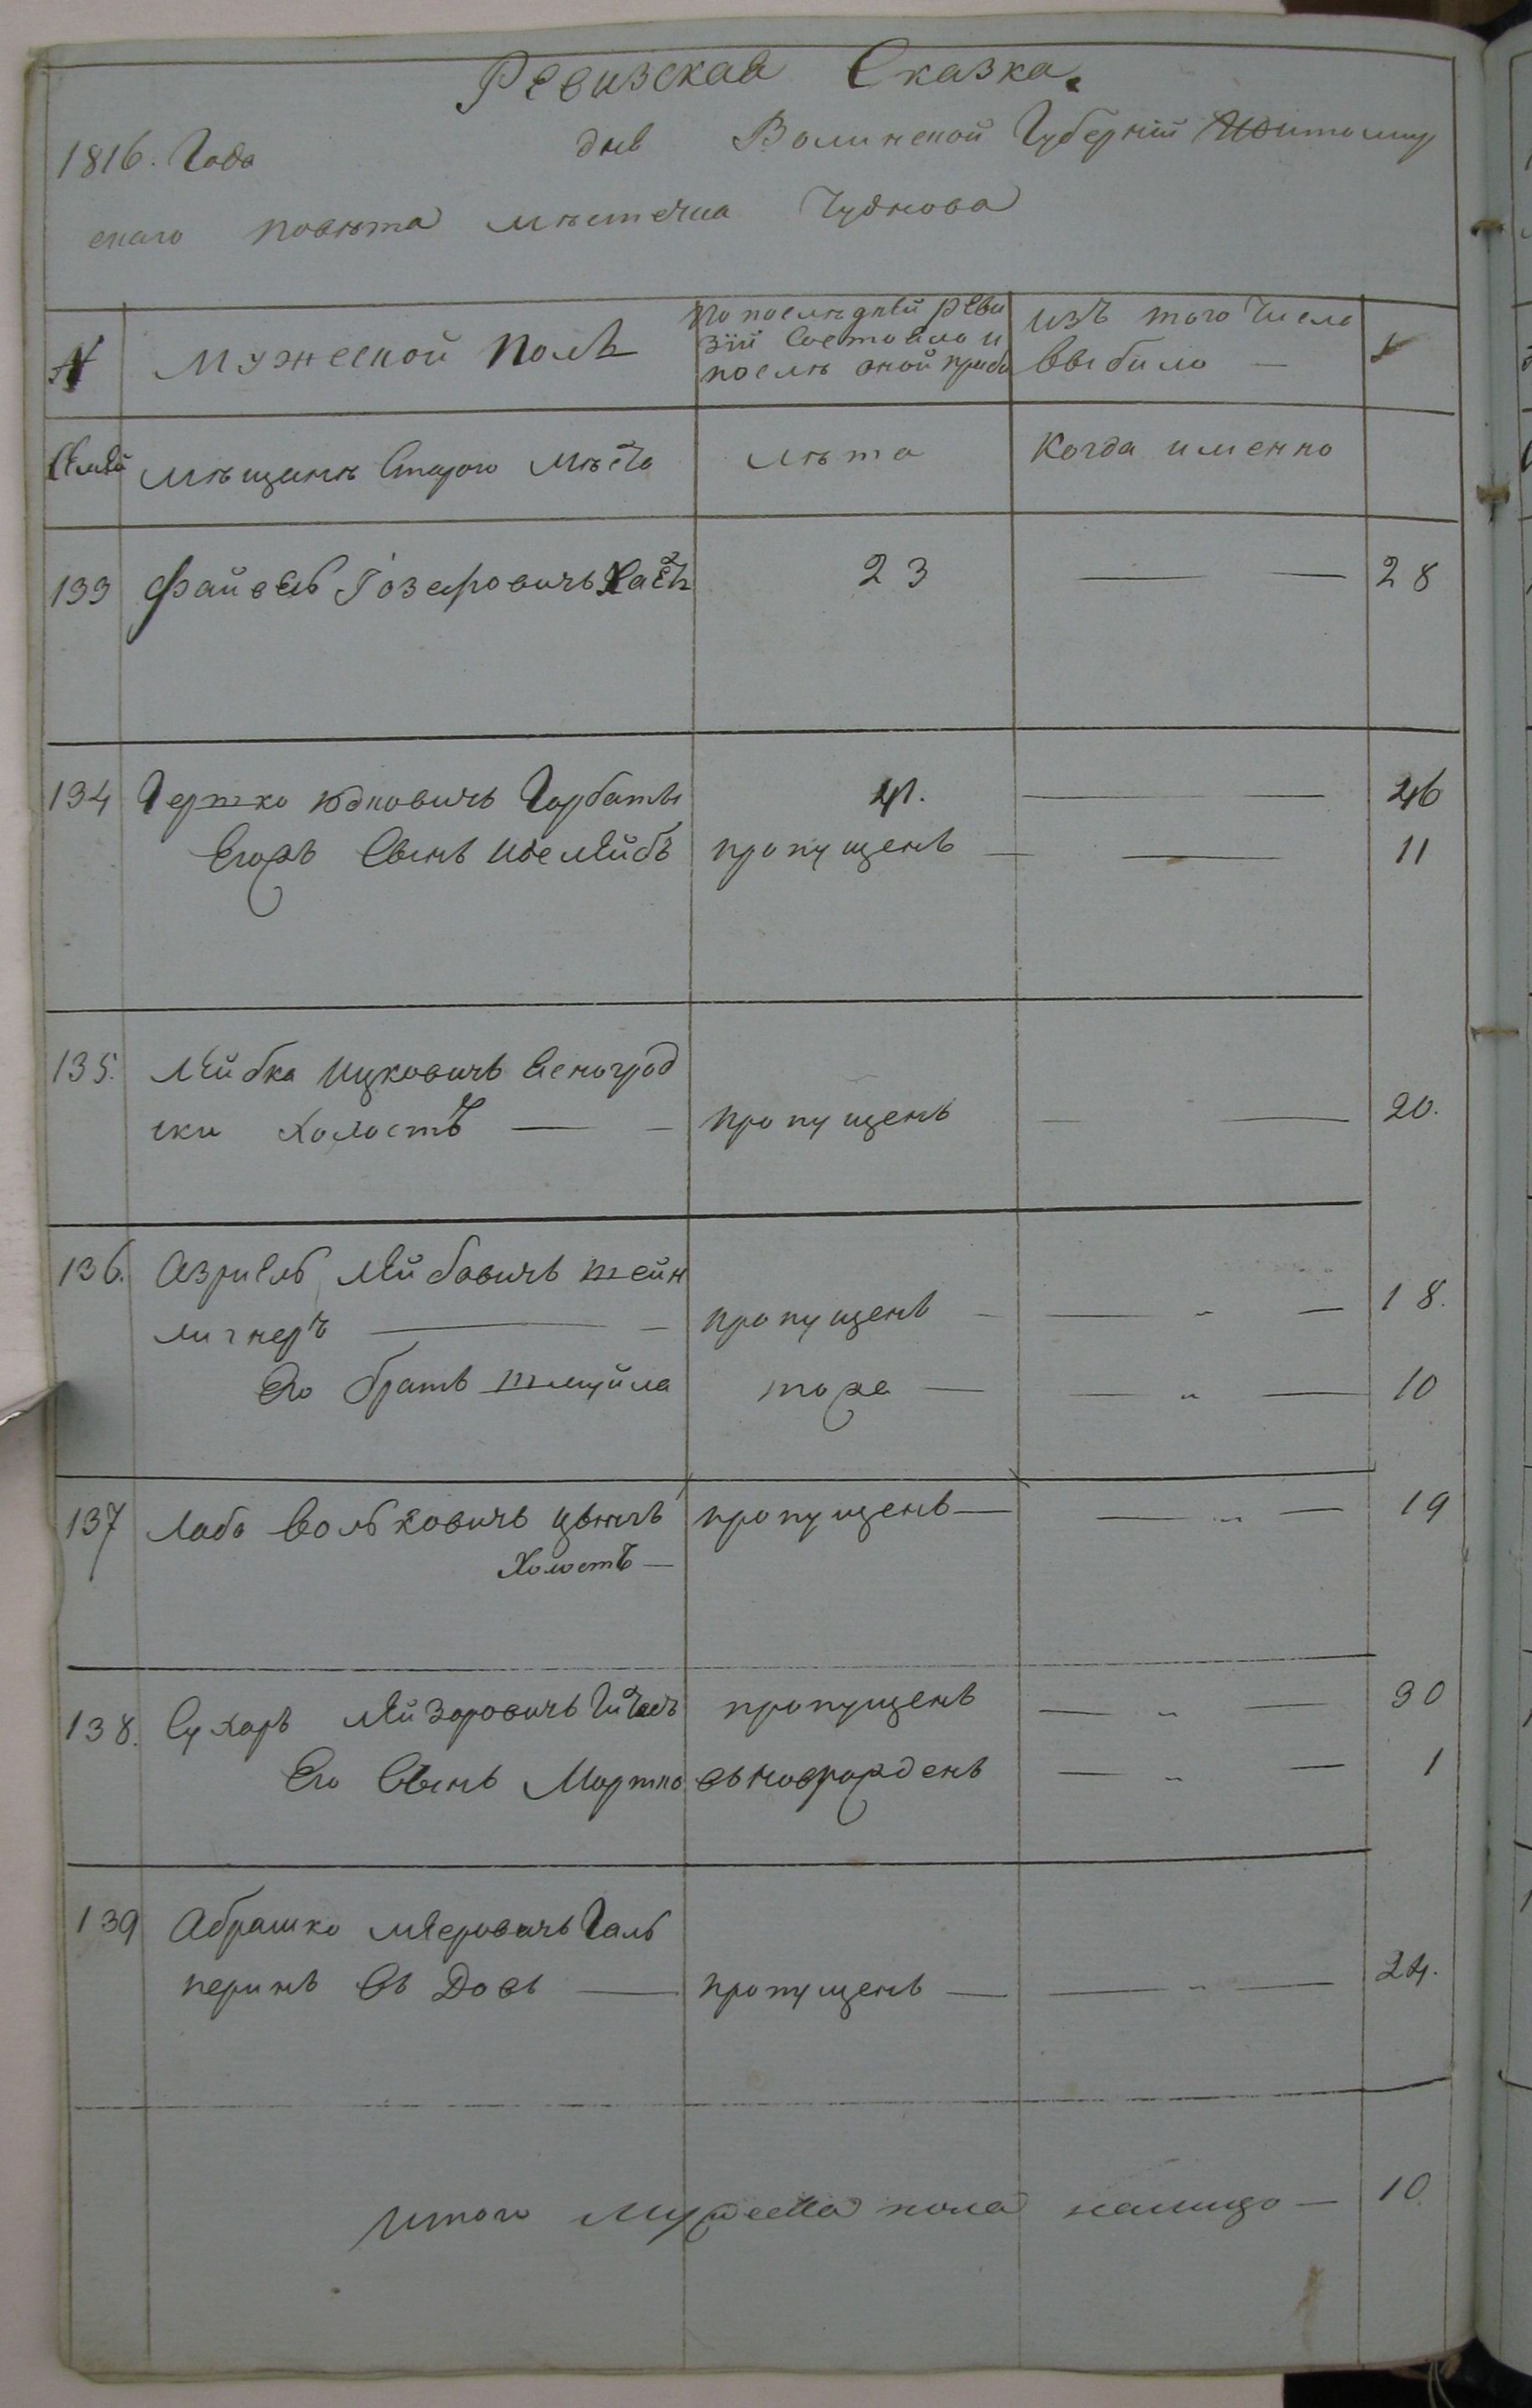 Ревизская Сказка.
1816. Года дня Волинской Губернїи Житомир
скаго повѣта мѣстечка Чуднова
N мужеской полъ по последнѣй реви изъ того числа
зїи состояло и
после оной прибы выбило —
семей мѣщанѣ Старого Мѣста лѣта Когда именно
133 Файвель Іозефовичъ 23 — — 28
134 Гершко Юдковичъ Горбаты 41. — — 46
Егожъ Сынъ Лейбъ пропущенъ — — 11
135. Лейбка Ицковичъ
ски холостъ — — пропущенъ — — 20.
136. Азриель Лейбовичъ Штейн
лигнеръ — — пропущенъ — — „ — 18.
Его братъ Шмуйла тоже — — „ — 10
137 Лаба Вольковичъ пропущенъ — — „ — 19
Холостъ —
138. Сухаръ Лейзоровичъ пропущенъ — „ — 30
Его Сынъ Мортко вновьрожденъ — „ — 1
139 Абрашко Меровичъ Галь
перинъ — пропущенъ — — „ — 24.
Итого Мужеска пола налицо — 10